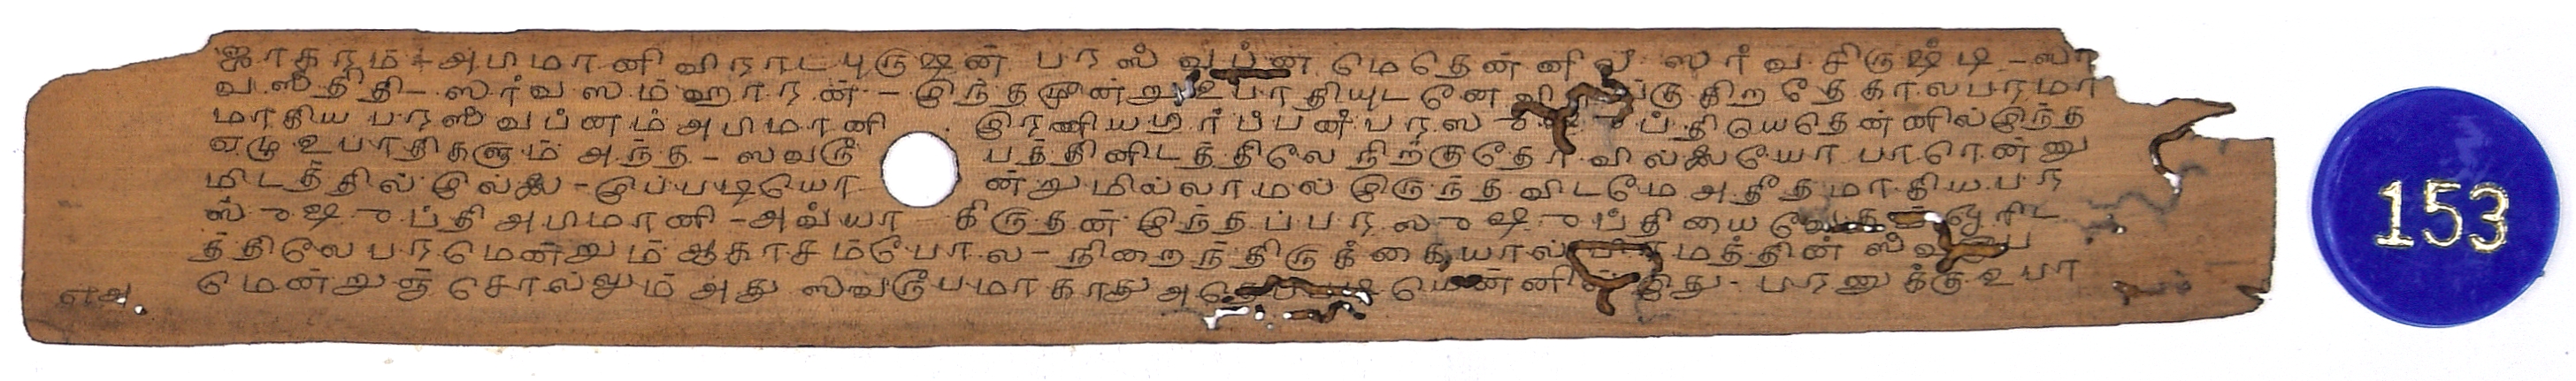 ஜாகரம் + அபிமானி விராடபுருஷன் பரஸ்வப்ன மெதென்னில் ஸர்வசிருஷ்டி - ஸர்
வஸ்திதி - ஸர்வஸம்ஹாரன் - இந்தமூன்று உபாதியுடனே குகிறதேகாலபரமா
மாகிய பரஸ்வப்னம் அபிமானி இரணியகிர்ப்பன் பரஸுஷுப்தியெதென்னில் இந்த
ஏழு உபாதிகளும் அந்த - ஸ்வரூ பத்தினிடத்திலே நிற்குதோ வில்லையோ பாரென்னு
மிடத்தில் இல்லை - இப்படியொ ன்றுமில்லாமல் இருந்தவிடமே அதீதமாகிய பர
ஸுஷுப்தி அபிமானி - அவ்யா கிருதன் இந்தப்பரஸுஷுப்தியை
த்திலே பரமென்றும் ஆகாசம்போல - நிறைந்திருக்கையால் மத்தின் ஸ்வரூப
மென்றுஞ் சொல்லும் அது ஸ்வரூபமாகாது இது - பரனுக்கு உபா
எஅ
153